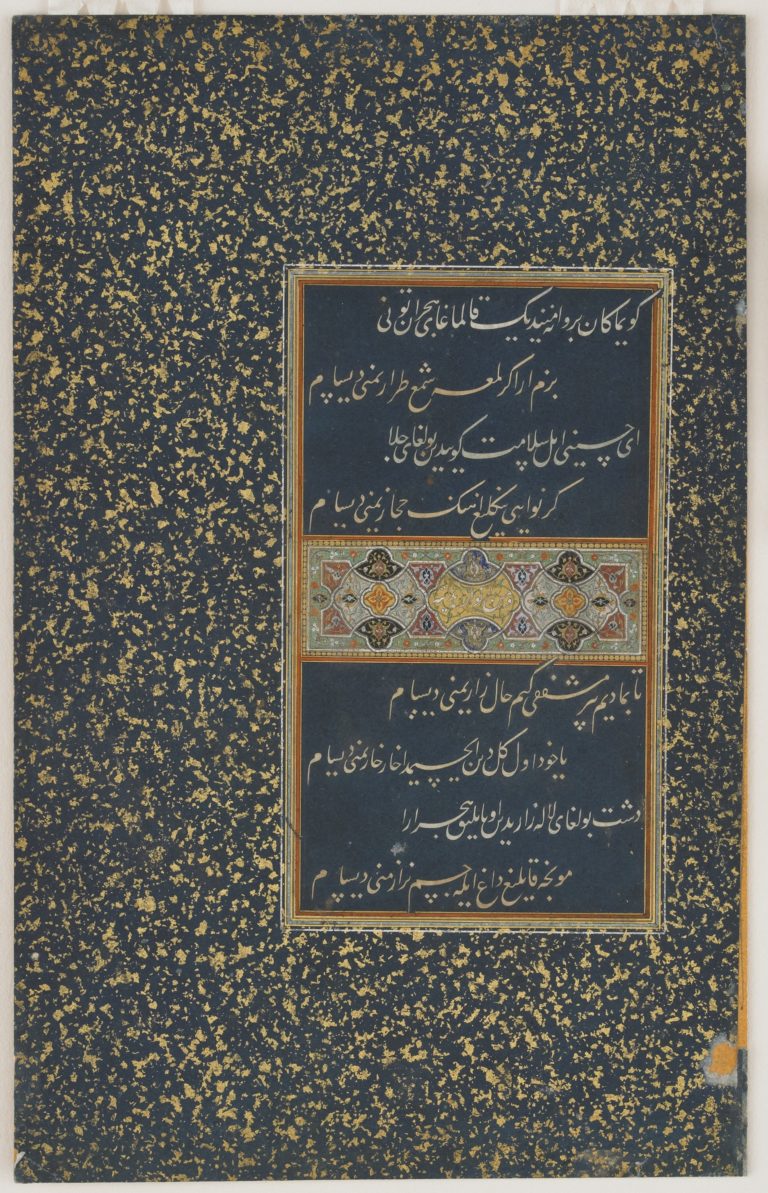 کویماکان بروانه قالماغای هجران تونی
بزم ارا کر لمعه شمع طرازیمنی دیسام
ای حسینی اهل سلامت کوییدین بولغای جلا
کر نوایی ینکلیغ اهنک حجازیمنی دیسام
تابمادیم بر مشفقی کیم حال زاریمنی دیسام
یا خود اول کلدین ایچیمدا خار خاریمنی دیسام
دشت بولغای لاله زاریدین اویاتلیق هجر ارا
مونجه قانلیغ داغ ایله جسم نزاریمنی دیسام